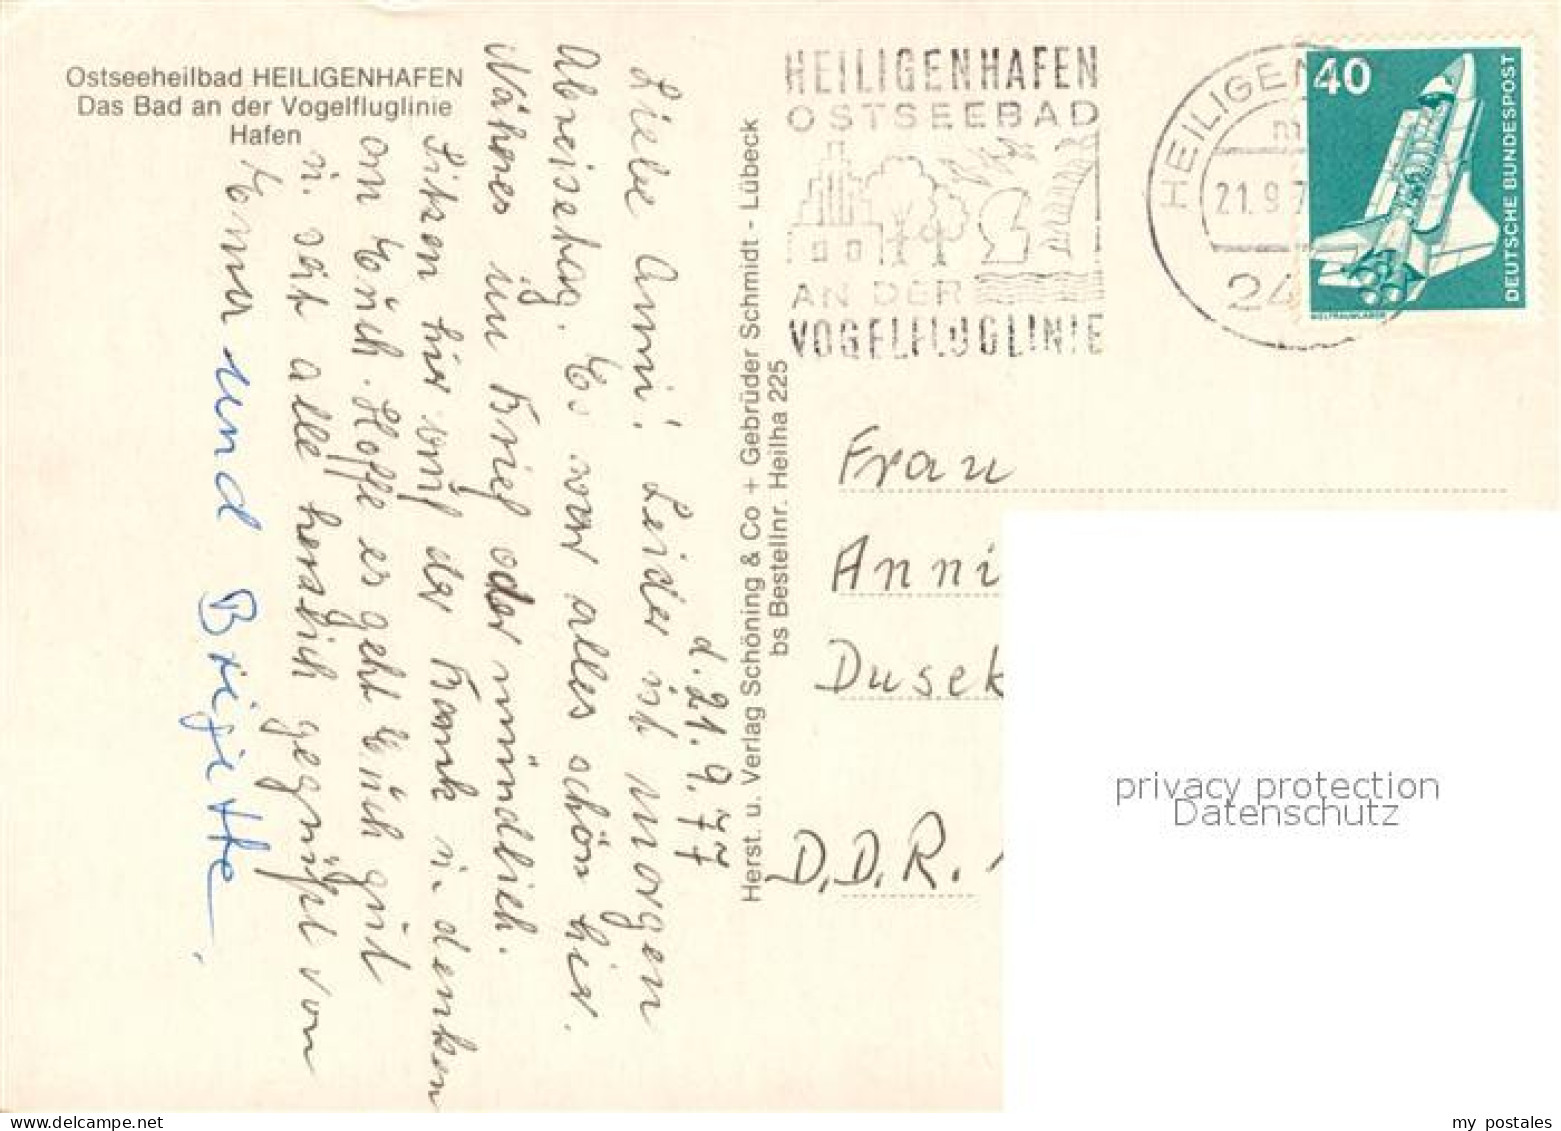 Ostseeheilbad HEILIGENHAFEN
Das Bad an der Vogelfluglinie
Hafen
d. 21.9.77
Liebe Anni! Leider ist morgen
Abreisetag. Es war alles schön hier.
Näheres im Brief oder mündlich.
Sitzen hier auf der Bank u. denken
an Euch. Hoffe es geht Euch gut
u. seit alle herzlich gegrüßt von
und Brigitte.
Herst. u. Verlag Schöning & Co + Gebrüder Schmidt - Lübeck
bs Bestellnr. Heilha 225
HEILIGENHAFEN
OSTSEEBAD
AN DER
VOGELFLUGLINIE
HEILIGEN
m
21.9.7
24
40
DEUTSCHE BUNDESPOST
WELTRAUMLABOR
Frau
Anni
Dusek
D.D.R.
privacy protection
Datenschutz
my postales